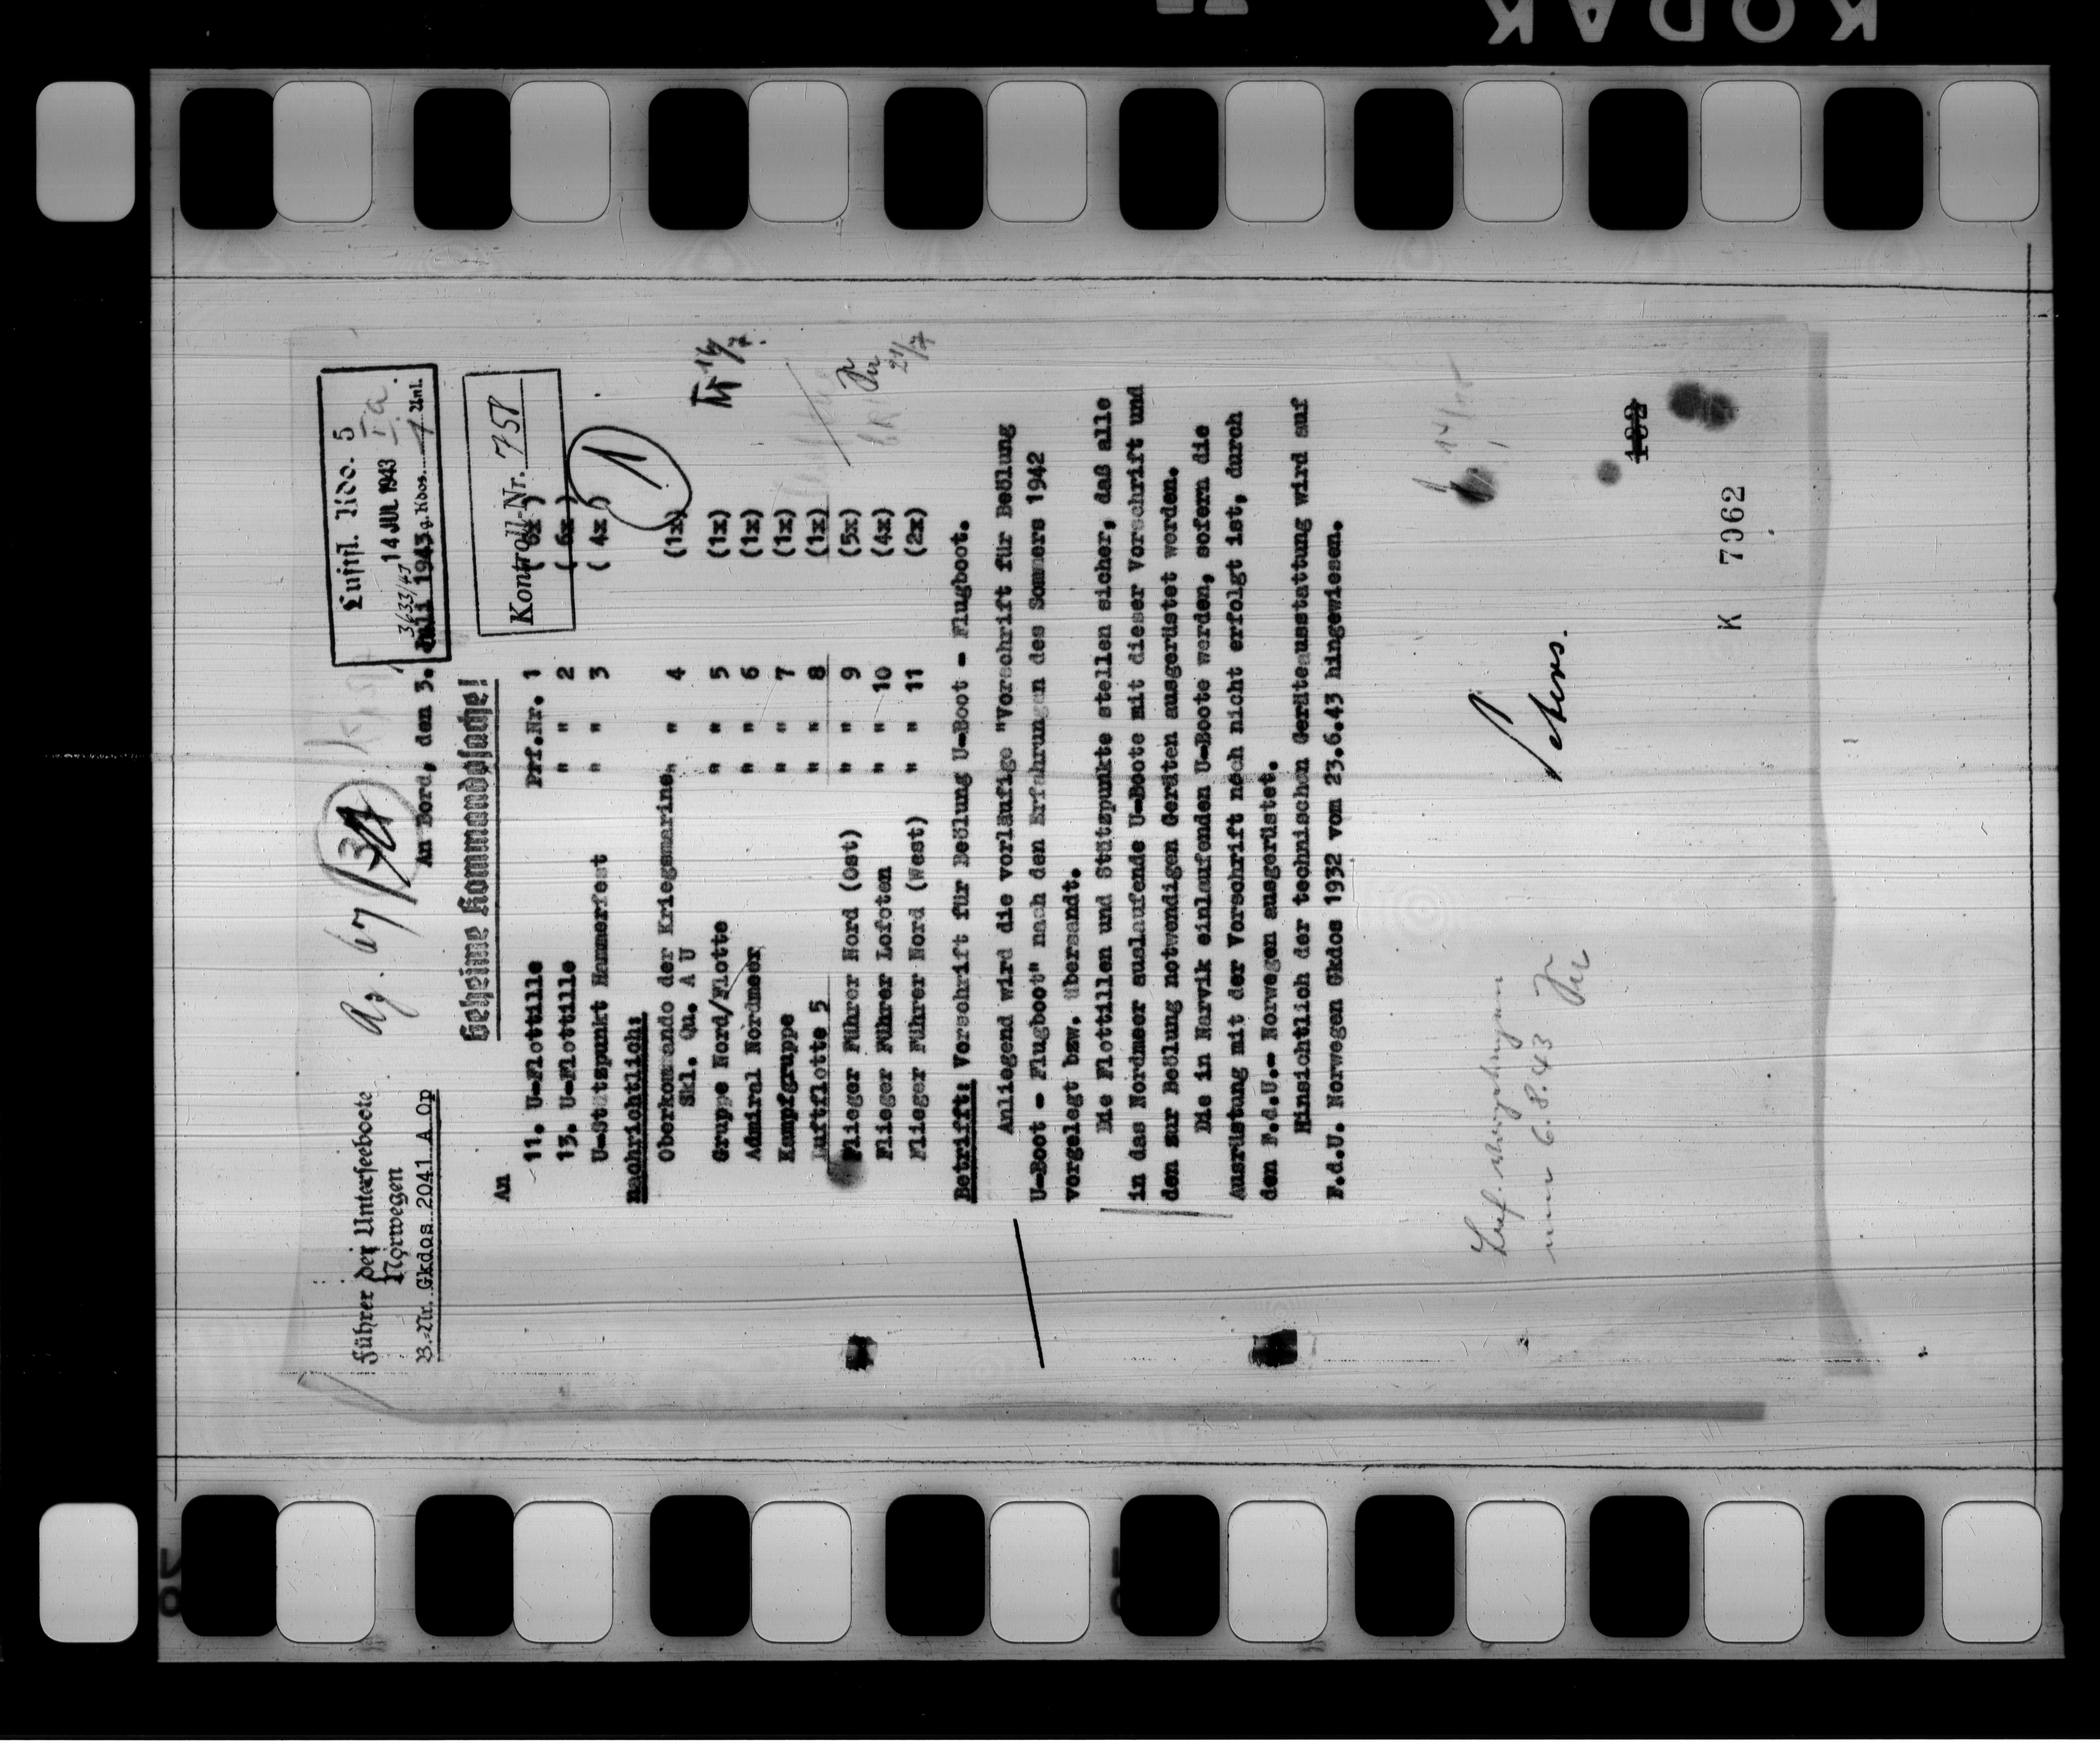 KODAK
Führer der Unterseeboote
Norwegen
B.-Nr. Gkdos 2041 A Op
An Bord, den 3. Juli 1943
Luftfl. Kdo. 5
14 JUL 1943 Ia
3633/43 g.Kdos. 1 Anl.
Geheime Kommandosache!
Kontroll-Nr. 758
An
11. U-Flottille Prf.Nr. 1 ( 6x )
13. U-Flottille " " 2 ( 6x )
U-Stützpunkt Hammerfest " " 3 ( 4x )
1
nachrichtlich:
Oberkommando der Kriegsmarine, " " 4 (1x)
Skl. Qu. A U
Gruppe Nord/Flotte " " 5 (1x)
Admiral Nordmeer " " 6 (1x)
Kampfgruppe " " 7 (1x)
Luftflotte 5 " " 8 (1x)
Flieger Führer Nord (Ost) " " 9 (5x)
Flieger Führer Lofoten " " 10 (4x)
Flieger Führer Nord (West) " " 11 (2x)
21/7
Betrifft: Vorschrift für Beölung U-Boot - Flugboot.
Anliegend wird die vorläufige "Vorschrift für Beölung
U-Boot - Flugboot" nach den Erfahrungen des Sommers 1942
vorgelegt bzw. übersandt.
Die Flottillen und Stützpunkte stellen sicher, daß alle
in das Nordmeer auslaufende U-Boote mit dieser Vorschrift und
den zur Beölung notwendigen Geräten ausgerüstet werden.
Die in Narvik einlaufenden U-Boote werden, sofern die
Ausrüstung mit der Vorschrift noch nicht erfolgt ist, durch
den F.d.U.- Norwegen ausgerüstet.
Hinsichtlich der technischen Geräteausstattung wird auf
F.d.U. Norwegen Gkdos 1932 vom 23.6.43 hingewiesen.
Peters.
6.8.43
182
K 7062